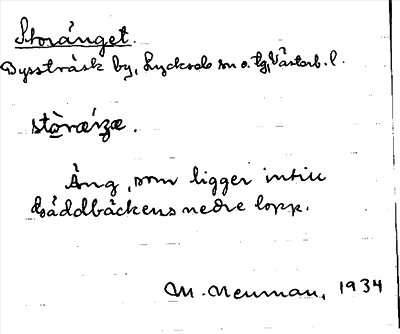 Storänget.
Dysstrask by, Lycksele sn o. tg, Västerb. l.
Äng, som ligger intill
Gäddbäckens nedre lopp.
M. Neuman, 1934